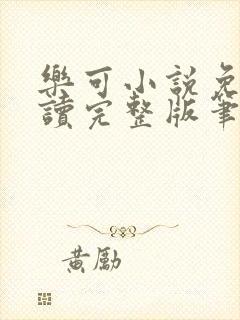 樂可小說免
讀完整版筆
黃勵